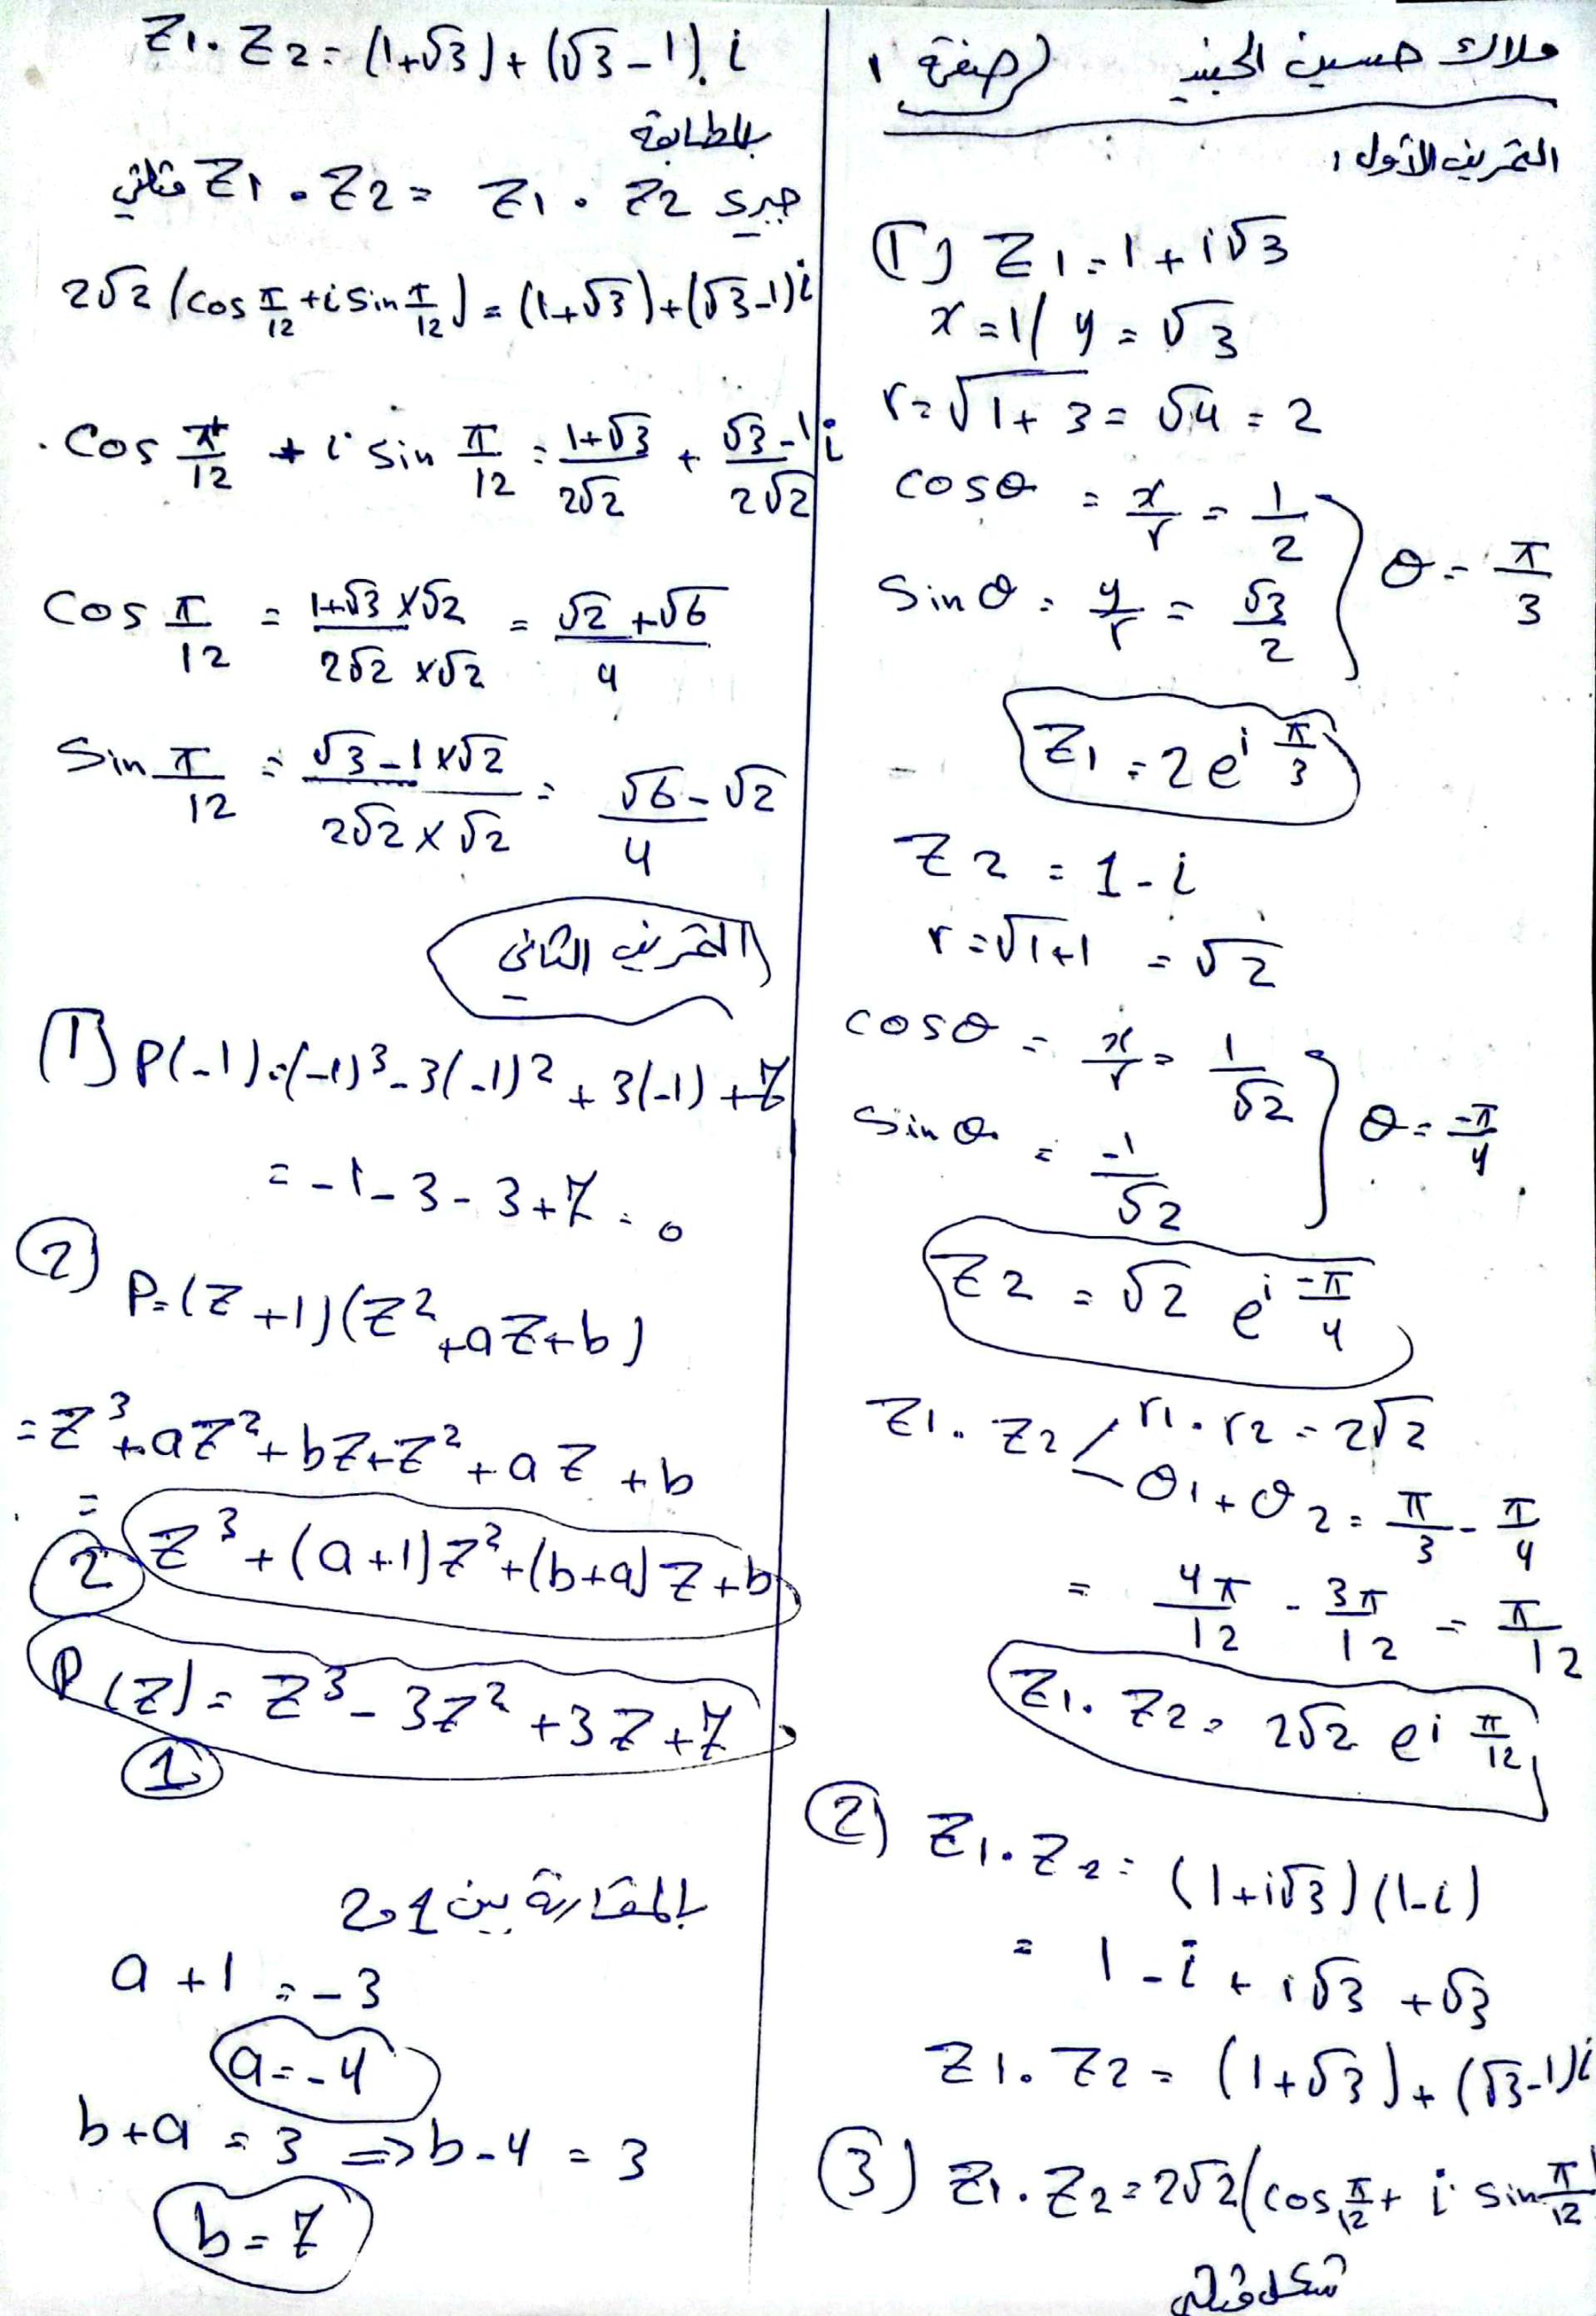 ملاك حسين الجنيد (صفحة ١
التمرين الأول :
1) Z1 = 1 + i√3
x = 1 / y = √3
r = √1+3 = √4 = 2
cosθ = x/r = 1/2
sinθ = y/r = √3/2 } θ = π/3
Z1 = 2 e^i π/3
Z2 = 1 - i
r = √1+1 = √2
cosθ = x/r = 1/√2
sinθ = -1/√2 } θ = -π/4
Z2 = √2 e^i -π/4
Z1 . Z2 < r1 . r2 = 2√2
θ1 + θ2 = π/3 - π/4
= 4π/12 - 3π/12 = π/12
Z1 . Z2 = 2√2 e^i π/12
2) Z1 . Z2 = (1+i√3)(1-i)
= 1 - i + i√3 + √3
Z1 . Z2 = (1+√3) + (√3-1)i
3) Z1 . Z2 = 2√2 (cos π/12 + i sin π/12)
Z1 . Z2 = (1+√3) + (√3-1). i
بالمطابقة
جبري Z1 . Z2 = Z1 . Z2 مثلثي
2√2 (cos π/12 + i sin π/12) = (1+√3) + (√3-1)i
cos π/12 + i sin π/12 = 1+√3/2√2 + √3-1/2√2 i
cos π/12 = 1+√3 ×√2/2√2 ×√2 = √2+√6/4
sin π/12 = √3-1 ×√2/2√2 ×√2 = √6-√2/4
التمرين الثاني
1) P(-1) = (-1)³ - 3(-1)² + 3(-1) + 7
= -1 - 3 - 3 + 7 = 0
2) P = (Z+1)(Z² + aZ + b)
= Z³ + aZ² + bZ + Z² + aZ + b
= Z³ + (a+1)Z² + (b+a)Z + b
2
P(Z) = Z³ - 3Z² + 3Z + 7
1
بالمقارنة بين 1 و 2
a + 1 = -3
a = -4
b + a = 3 ⇒ b - 4 = 3
b = 7